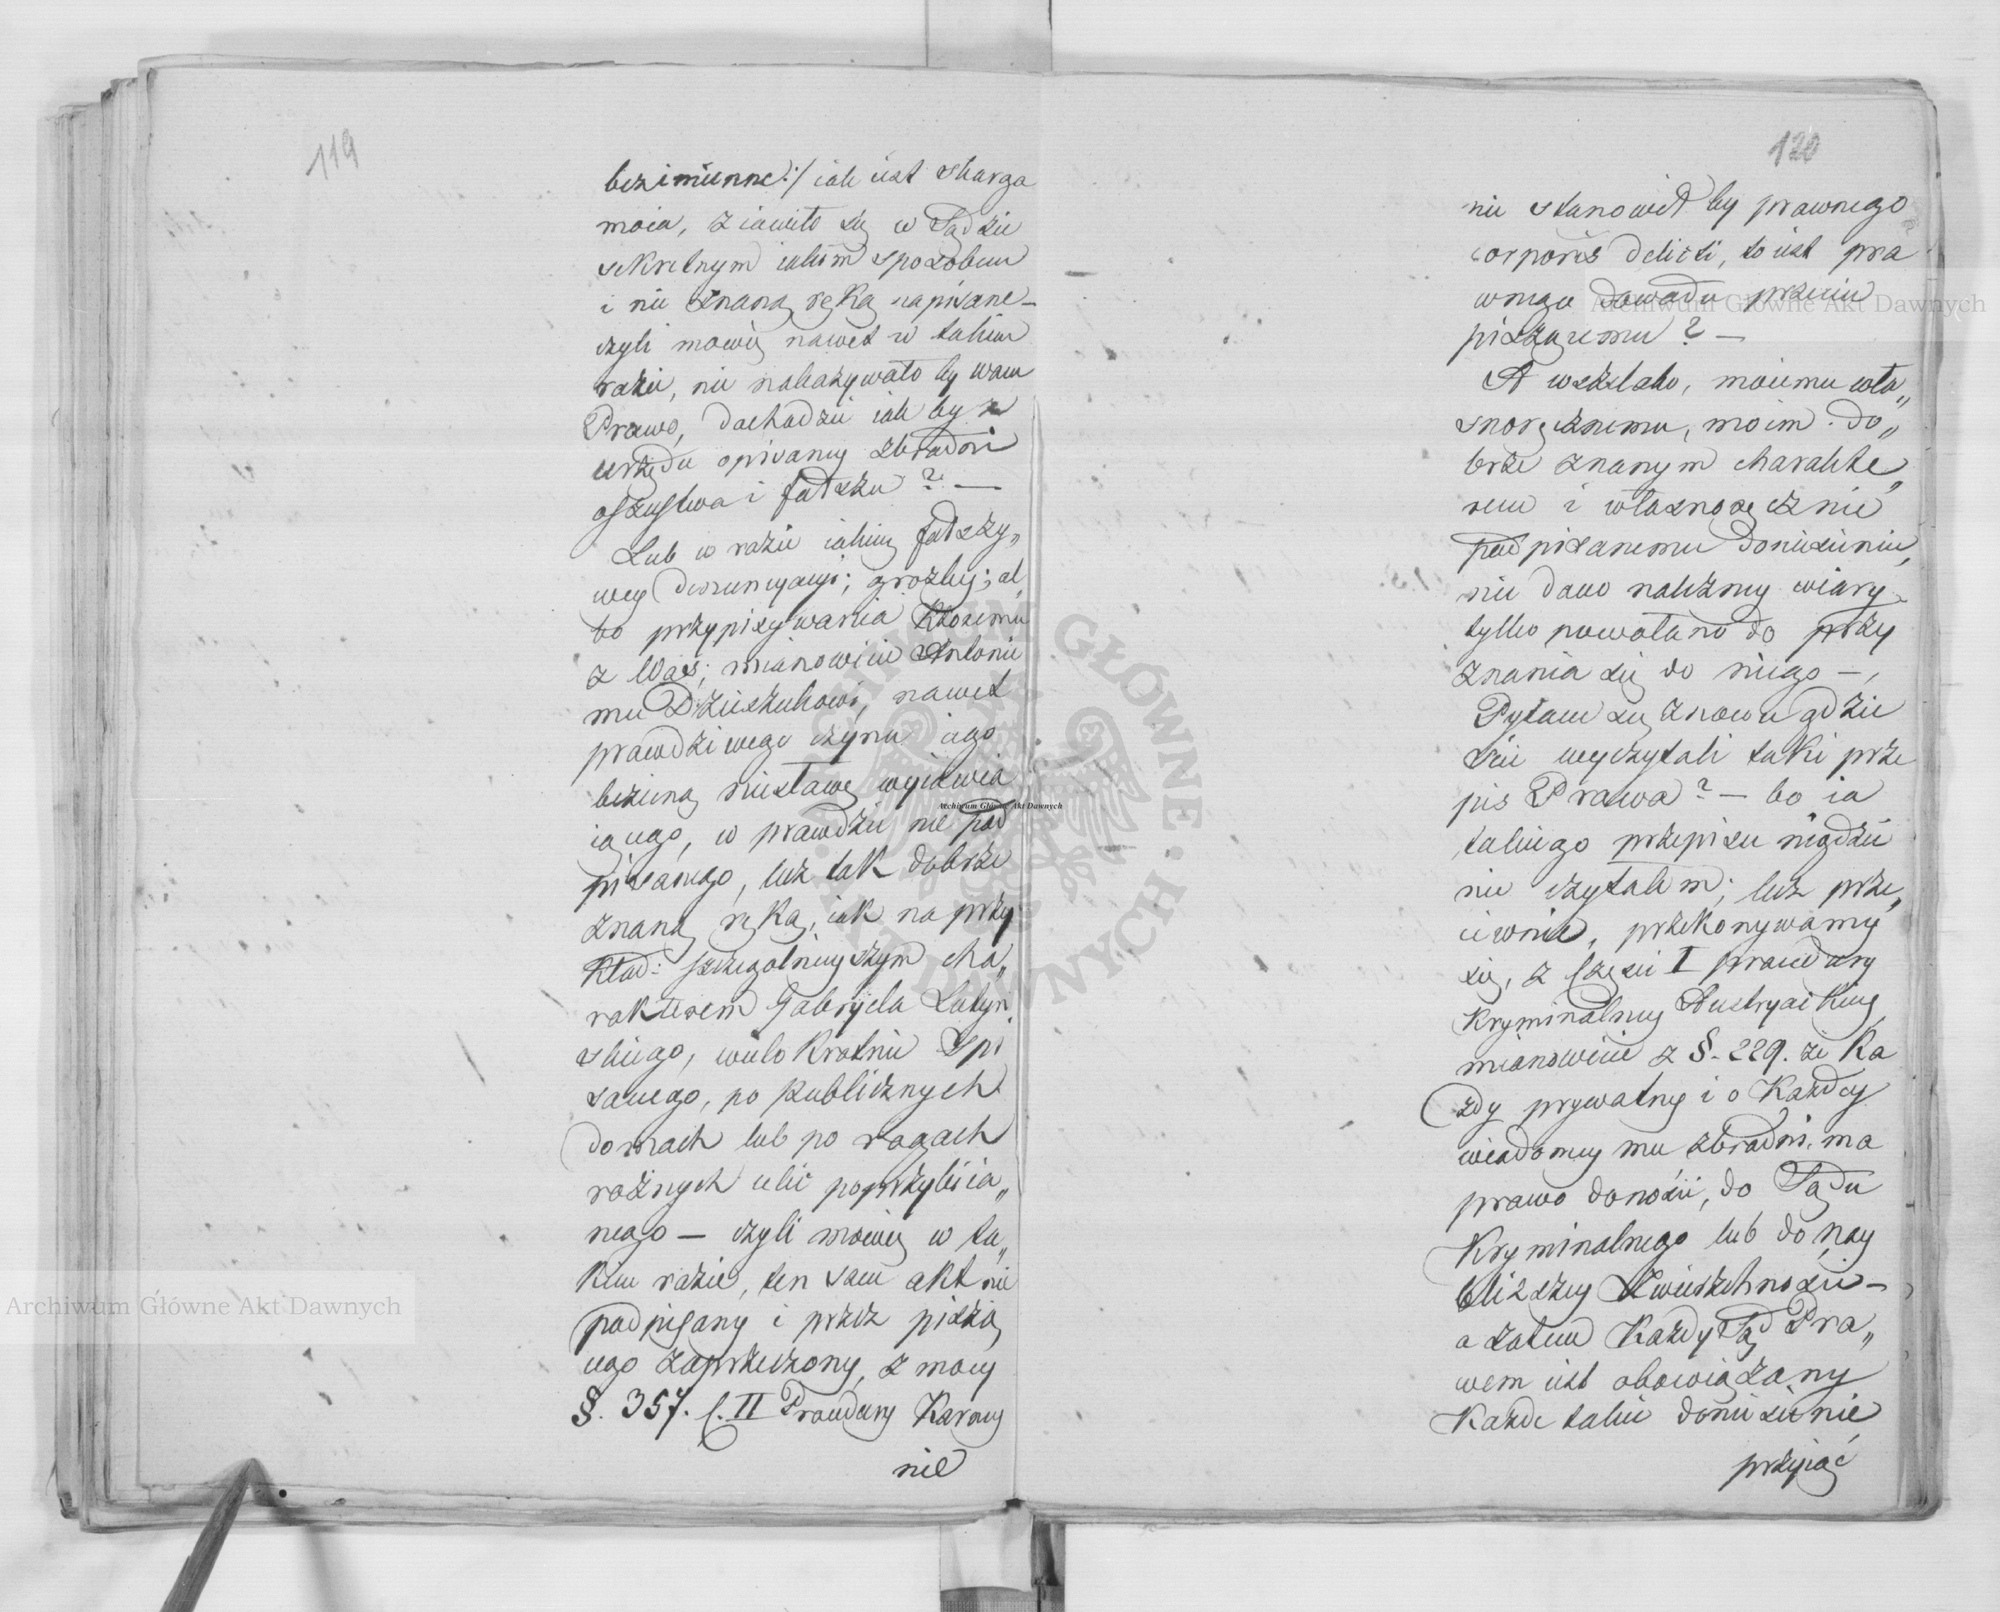 119
bezimienne:/ iak iest skarga
moia, ziawiło się w Sądzie
sekretnym iakim sposobem
i nie znaną ręką napisane —
czyli mowię nawet w takim
razie, nie nakazywało by wam
Prawo, dochodzić iak by z
urzędu opisaney zbrodni
oszustwa i fałszu ? —
Lub w razie iakiey fałszy„
wey denuncyacyi; groźby; al„
bo przypisywania Ktoremu
z Was; mianowicie Antonie
mu Dzieszukowi, nawet
prawdziwego czynu iego
bezczną niesławę wyiawia
iącego, w prawdzie nie pod
pisanego, lecz tak dobrze
znaną ręką, iak na przy
kład: szczegolnieyszym cha„
rakterem Gabryela Lutyń
skiego, wielokrotnie spi
sanego, po publicznych
domach lub po rogach
rożnych ulic poprzylbiia„
nego — czyli mowię w ta„
kim razie, ten sam akt nie
podpisany i przez piszą
cego zaprzeczony, z mocy
§. 357. C. II Procedury Karney
nie
120
nie stanowił by prawnego
corporis delicti, to iest pra
wnego dowodu przeciw
piszącemu ? —
A wszelako, moiemu wła„
snoręcznemu, moim do„
brze znanym charakte„
rem i własnoręcznie
podpisanemu doniesieniu,
nie dano należney wiary
tylko powołano do przy
znania się do niego —,
Pytam się znowu gdzie
ście wyczytali taki prze
pis Prawa? — bo ia
takiego przepisu nigdzie
nie czytałem; lecz prze„
ciwnie, przekonywamy
się, z Części I procedury
Kryminalney Austryackiey
mianowicie z §. 229. że Ka
żdy prywatny i o Każdey
wiadomey mu zbrodni, ma
prawo donosić, do Sądu
Kryminalnego lub do nay
bliższey Zwierzchności —
a zatem Każdy Sąd Pra„
wem iest obowiązany
Każde takie doniesienie
przyiąć
Archiwum Główne Akt Dawnych
Archiwum Główne Akt Dawnych
Archiwum Główne Akt Dawnych
ARCHIWUM GŁÓWNE AKT DAWNYCH